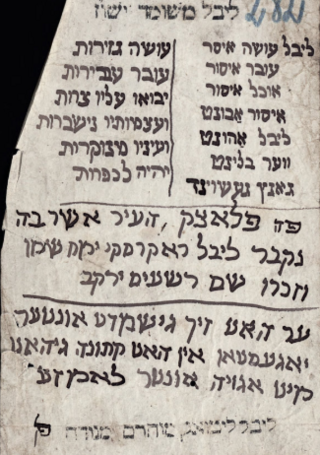 ליבל משומד
ליבל עושה איסר
עובר איסור
אוכל איסור
איסור אבונט
ליבל אהונט
ווער בלינט
גאנץ געשווינד
עושה גזירות
עובר עבירות
יבואו עליו צרות
ועצמותיו נישברות
ועיניו מינוקרות
יהיה לכפרות
פה פלאצק, העיר אשר בה
נקבר ליבל ראקרסקי ימח שמו
וזכרו שם רשעים ירקב
ער האט זיך גישמדט אונטער
אין האט חתונה גיהאט
מיט אגויה אונטער לאמזע
ליבל ליטוואק מוחרם מנודה